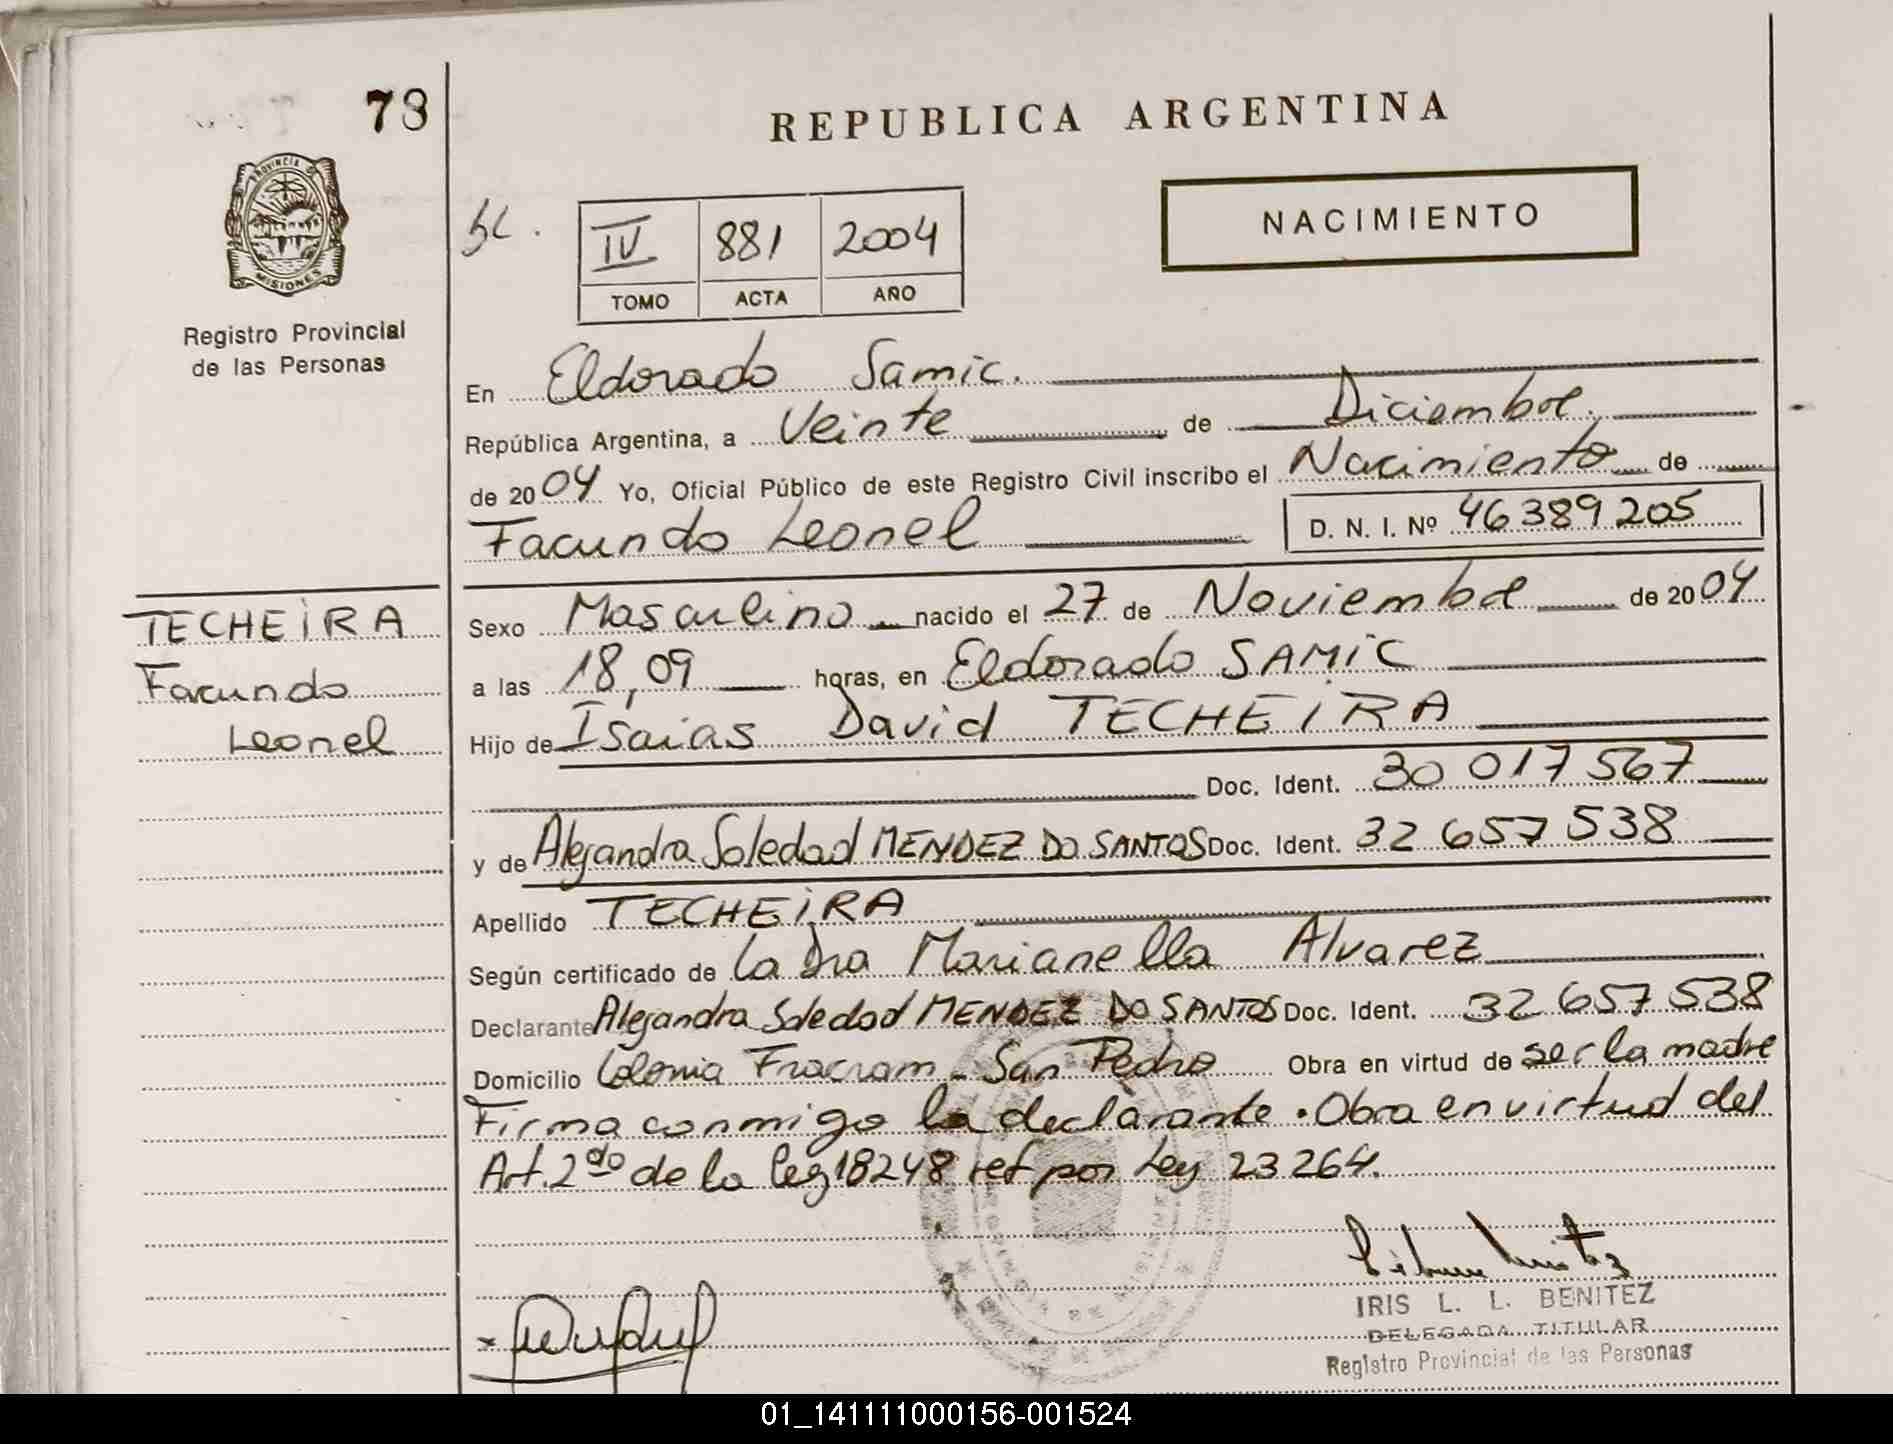 78
REPUBLICA ARGENTINA
PROVINCIA DE
MISIONES
Registro Provincial
de las Personas
NACIMIENTO
IV 881 2004
TOMO ACTA AÑO
En Eldorado Samic.
República Argentina, a Veinte de Diciembre.
de 2004 Yo, Oficial Público de este Registro Civil inscribo el Nacimiento de
Facundo Leonel D. N. I. Nº 46389205
TECHEIRA
Facundo
Leonel
Sexo Masculino nacido el 27 de Noviembre de 2004
a las 18,09 horas, en Eldorado SAMIC
Hijo de Isaias David TECHEIRA
Doc. Ident. 30 017 567
y de Alejandra Soledad MENDEZ DO SANTOS Doc. Ident. 32 657 538
Apellido TECHEIRA
Según certificado de la Dra Marianella Alvarez
Declarante Alejandra Soledad MENDEZ DO SANTOS Doc. Ident. 32 657 538
Domicilio Colonia Fracram - San Pedro Obra en virtud de ser la madre
Firma conmigo la declarante. Obra en virtud del
Art. 2do de la ley 18248 ref por Ley 23264.
IRIS L. L. BENITEZ
DELEGADA TITULAR
Registro Provincial de las Personas
01_141111000156-001524